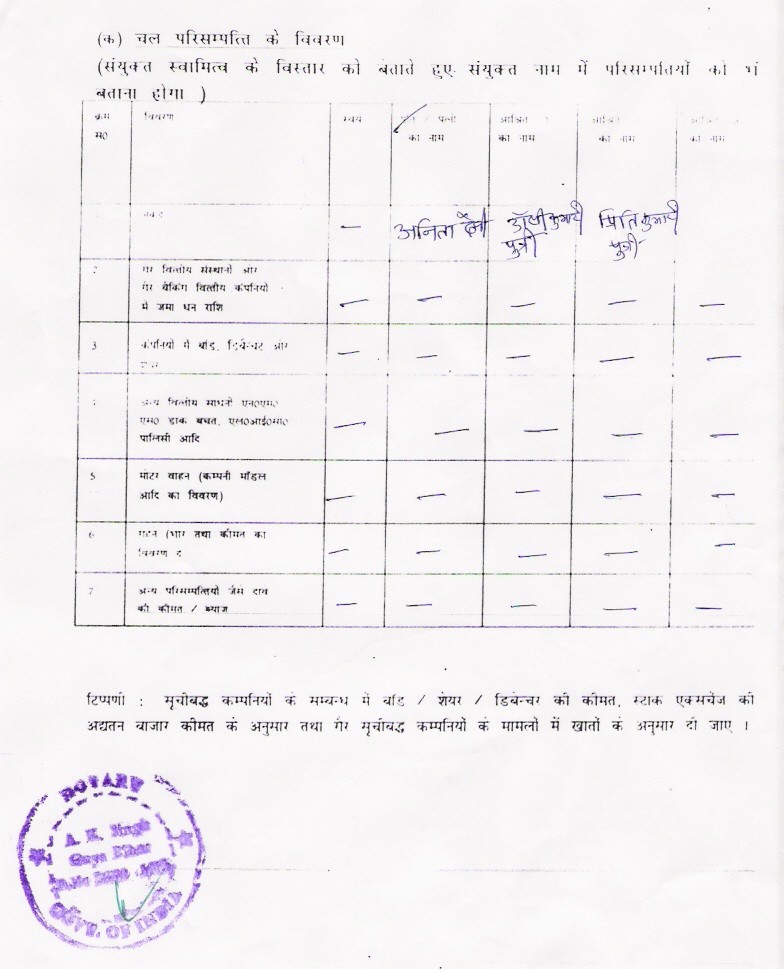 (क) चल परिसम्पत्ति के विवरण
(संयुक्त स्वामित्व के विस्तार को बताते हुए संयुक्त नाम में परिसम्पतियों को भी
बताना होगा )
क्रम विवरण स्वयं पत्नी आश्रित
स0 का नाम का नाम का नाम का नाम
नकद — अनिता देवी कुमारी प्रिति कुमारी
पुत्री पुत्री
गैर वित्तीय संस्थानों और
गैर बैंकिंग वित्तीय कंपनियों
में जमा धन राशि — — — — —
3 कंपनियों में बांड, डिबेन्चर और
— — — — —
अन्य वित्तीय साधनों एन0एस0
एस0 डाक बचत, एल0आई0सी0
पालिसी आदि — — — — —
5 मोटर वाहन (कम्पनी मॉडल
आदि का विवरण) — — — — —
6 गहने (भार तथा कीमत का
विवरण द — — — — —
7 अन्य परिसम्पत्तियों जैसे दावे
की कीमत / ब्याज — — — — —
टिप्पणी : सूचीबद्ध कम्पनियों के सम्बन्ध में बांड / शेयर / डिबेन्चर की कीमत, स्टाक एक्सचेंज की
अद्यतन बाजार कीमत के अनुसार तथा गैर सूचीबद्ध कम्पनियों के मामलों में खातों के अनुसार दी जाए ।
NOTARY
A. K. Singh
Gaya Bihar
GOVT. OF INDIA